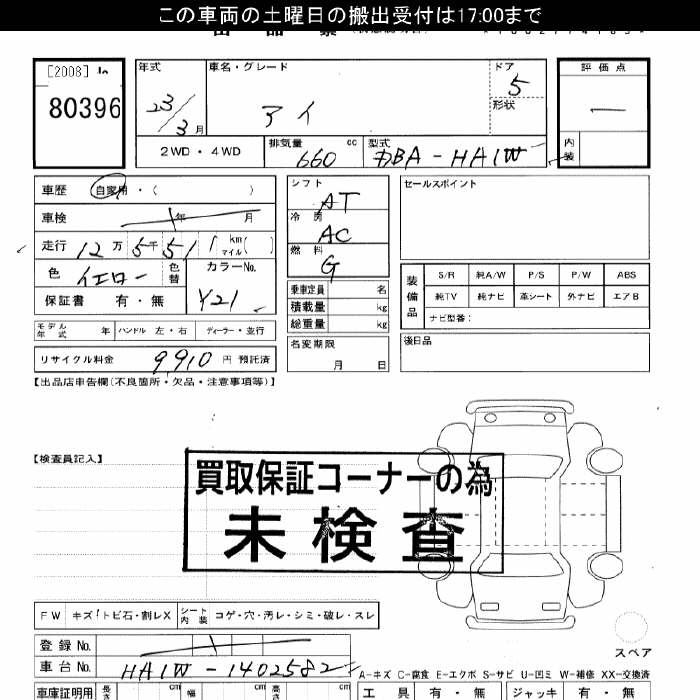 この車両の土曜日の搬出受付は17:00まで
[2008]
80396
年式
23/3月
車名・グレード
アイ
ドア
5
形状
評価点
内装
2WD・4WD
排気量
660 cc
型式
DBA-HA1W
車歴 自家用・( )
車検 年 月
走行 12万 5千 51 km マイル( )
色 イエロー 色替
カラーNo.
Y21
保証書 有・無
シフト
AT
冷房
AC
燃料
G
乗車定員 名
積載量 kg
総重量 kg
名変期限
月 日
セールスポイント
装備品
S/R 純A/W P/S P/W ABS
純TV 純ナビ 革シート 外ナビ エアB
ナビ型番:
後日品
モデル年式 年 ハンドル 左・右 ディーラー・並行
リサイクル料金 9910 円 預託済
【出品店申告欄(不良箇所・欠品・注意事項等)】
【検査員記入】
買取保証コーナーの為
未検査
FW キズ/トビ石・割レX シート内装 コゲ・穴・汚レ・シミ・破レ・スレ
スペア
登録No.
車台No. HA1W-1402582
A-キズ C-腐食 E-エクボ S-サビ U-凹ミ W-補修 XX-交換済
車庫証明用 長さ cm 幅 cm 高さ cm
工具 有・無 ジャッキ 有・無